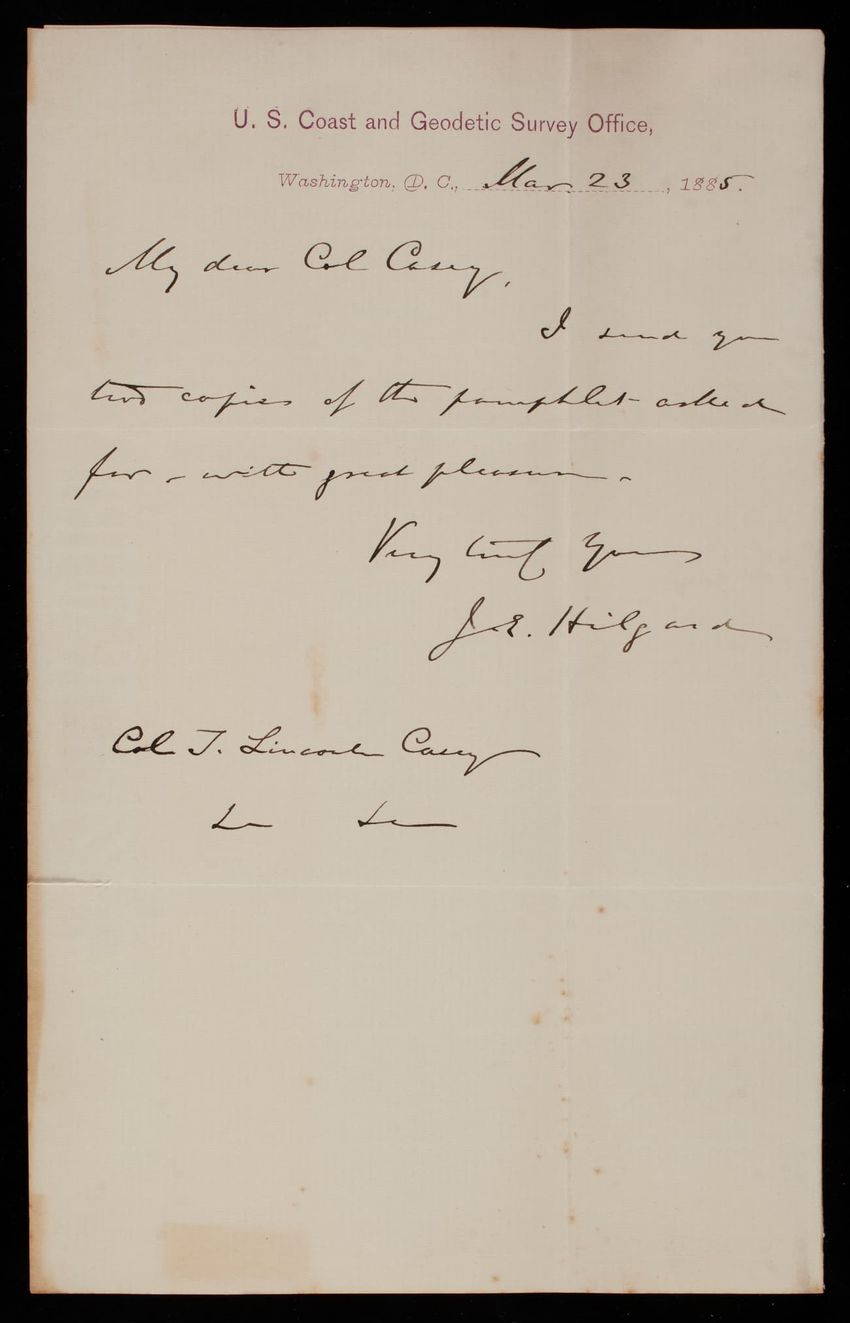 U. S. Coast and Geodetic Survey Office,
Washington, D. C., Mar. 23, 1885.
My dear Col Casey,
I send you
two copies of the pamphlet asked
for - with great pleasure -
Very truly Yours
J. E. Hilgard
Col T. Lincoln Casey